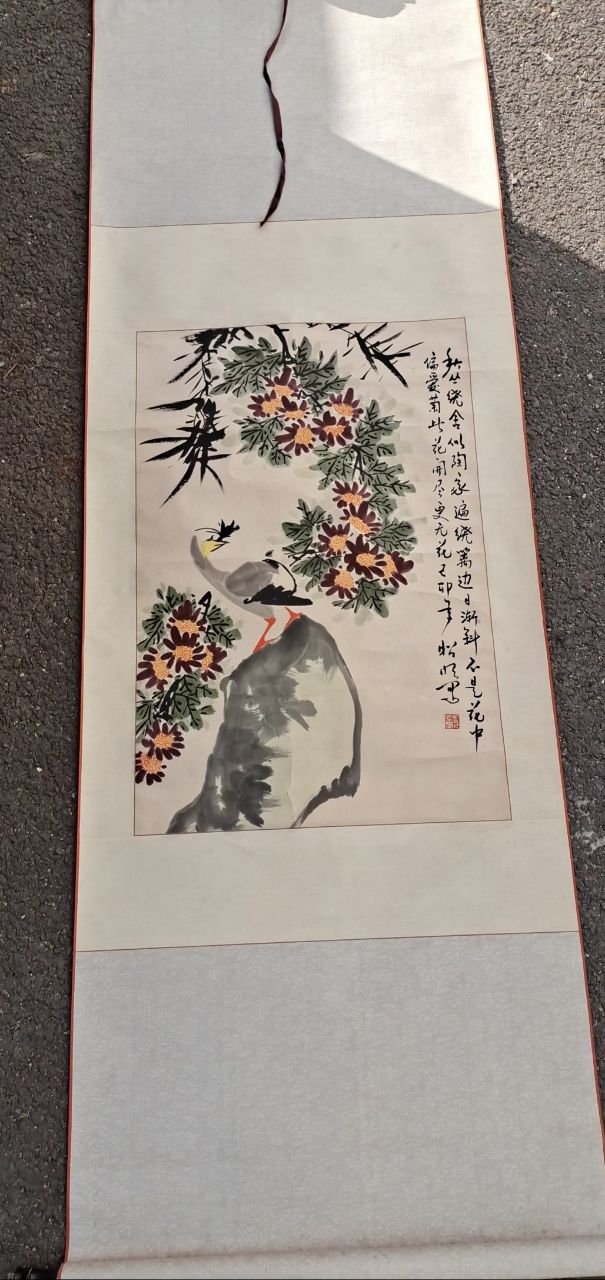 秋丛绕舍似陶家遍绕篱边日渐斜不是花中
偏爱菊此花开尽更无花己卯年松